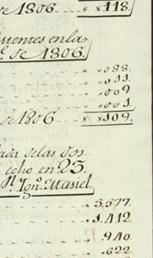 de 1806 8118.
uientes en la
de 1806.
088.
011.
009
001.
de 1806 8109.
dada de las dos
echo en 23.
Ygn.º Masiel
5,577.
1.412
940
622